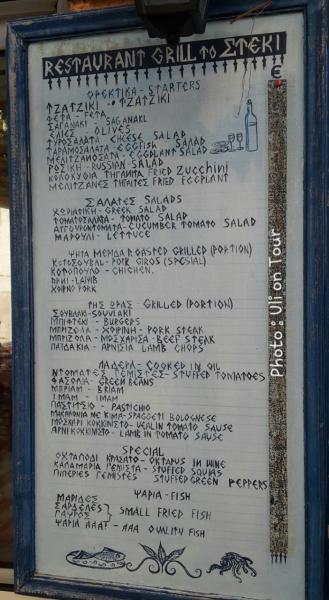 RESTAURANT GRILL TO ΣΤΕΚΙ
€
ΟΡΕΚΤΙΚΑ - STARTERS
TZATZIKI - TZATZIKI
ΦΕΤΑ - FETA
ΣΑΓΑΝΑΚΙ - SAGANAKI
ΕΛΙΕΣ OLIVES
ΤΥΡΟΣΑΛΑΤΑ CHEESE SALAD
ΤΑΡΑΜΟΣΑΛΑΤΑ - EGGFISH SALAD
ΜΕΛΙΤΖΑΝΟΣΑΤΑ - EGGPLANT SALAD
ΡΩΣΙΚΗ - RUSSIAN SALAD
ΚΟΛΟΚΥΘΙΑ ΤΗΓΑΝΙΤΑ FRIED Zucchini
ΜΕΛΙΤΖΑΝΕΣ ΤΗΓΑΙΤΕΣ FRIED EGGPLANT
ΣΑΛΑΤΕΣ SALADS
ΧΩΡΙΑΤΙΚΗ - GREEK SALAD
ΤΟΜΑΤΟΣΑΛΑΤΑ - TOMATO SALAD
ΑΓΓΟΥΡΟΝΤΟΜΑΤΑ - CUCUMBER TOMATO SALAD
ΜΑΡΟΥΛΙ - LETTUCE
ΨΗΤΑ ΜΕΡΙΔΑ ROASTED GRILLED (PORTION)
ΚΟΤΟΣΟΥΒΛΙ - PORK GIROS (SPECIAL)
ΚΟΤΟΠΟΥΛΟ - CHICHEN.
ΧΟΙΡΙΝΟ PORK
ΤΗΣ ΩΡΑΣ - GRILLED (PORTION)
ΣΟΥΒΛΑΚΙ - SOUVLAKI
ΜΠΙΦΤΕΚΙ - BURGERS
ΜΠΡΙΖΟΛΑ - ΧΟΙΡΙΝΗ - PORK STEAK
ΜΠΡΙΖΟΛΑ - ΜΟΣΧΑΡΙΣΑ - BEEF STEAK
ΠΑΙΔΑΚΙΑ - ΑΡΝΙΣΙΑ LAMB CHOPS
ΛΑΔΕΡΑ - COOKED IN OIL
ΝΤΟΜΑΤΕΣ ΓΕΜΙΣΤΕΣ - STUFFED TOMATOES
ΦΑΣΟΛΙΑ - GREEN BEANS
ΜΠΡΙΑΜ - BRIAM
ΙΜΑΜ - IMAM
ΠΑΣΤΙΤΣΙΟ - PASTICHIO
ΜΑΚΑΡΟΝΙΑ ΜΕ ΚΙΜΑ - SPAGGETI BOLOGNESE
ΜΟΣΧΑΡΙ ΚΟΚΚΙΝΙΣΤΟ - VEALIN TOMATO SAUSE
ΑΡΝΙ ΚΟΚΚΙΝΙΣΤΟ - LAMB IN TOMATO SAUSE
SPECIAL
ΟΚΤΑΠΟΔΙ ΚΡΑΣΑΤΟ - OKTAPUS IN WINE
ΚΑΛΑΜΑΡΙΑ ΓΕΜΙΣΤΑ - STUFFED SQUIAS
ΠΙΠΕΡΙΕΣ ΓΕΜΙΣΤΕΣ STUFFED GREEN PEPPERS
ΨΑΡΙΑ - FISH
ΜΑΡΙΔΕΣ
ΣΑΡΔΕΛΕΣ
ΓΑΥΡΟΣ } SMALL FRIED FISH
ΨΑΡΙΑ ΑΑΑΤ - AAA QUALITY FISH
Photo: Uli on Tour